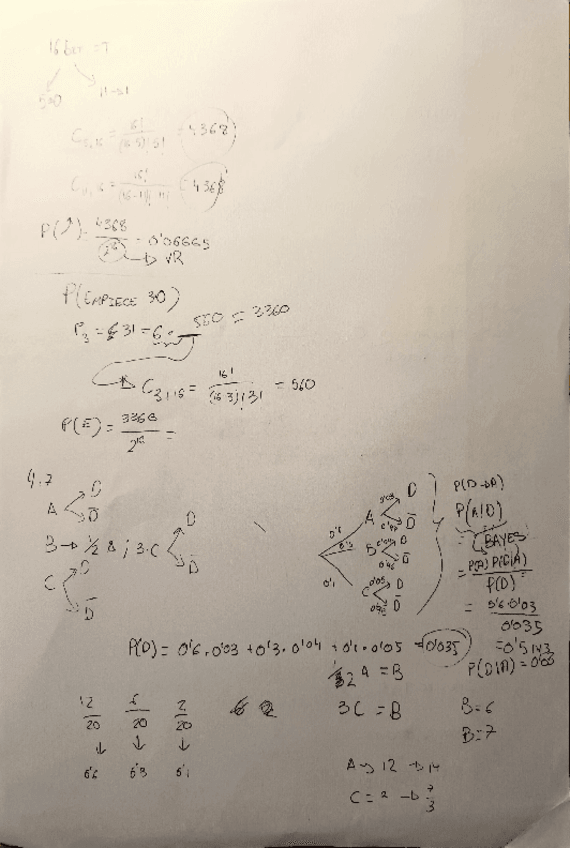 16 bit = ?
C₅,₁₆ = 16! / (16-5)! 5! = 4368
= 4368
P( ) = 4368 / 2¹⁶ = 0'06665
→ VR
P(EMPIECE 30)
P₃ = 3! = 6 · 560 = 3360
C₃,₁₆ = 16! / (16-3)! 3! = 560
P(E) = / 2¹⁶ =
4.7
A D D̄
B → 1/2 A ; 3·C D D̄
C D D̄
0'6 A 0'03 D D̄
0'3 B 0'04 D D̄
0'1 C 0'05 D D̄
P(D→A)
P(A|D)
= BAYES
= P(A) P(D|A) / P(D)
= 0'6·0'03 / 0'035
= 0'5143
P(D) = 0'6·0'03 + 0'3·0'04 + 0'1·0'05 = 0'035
P(D|A) =
A = B
3C = B
B=6
B=7
12/20 6/20 2/20
↓ ↓ ↓
0'6 0'3 0'1
A → 12 → 14
C = 2 → 7/3